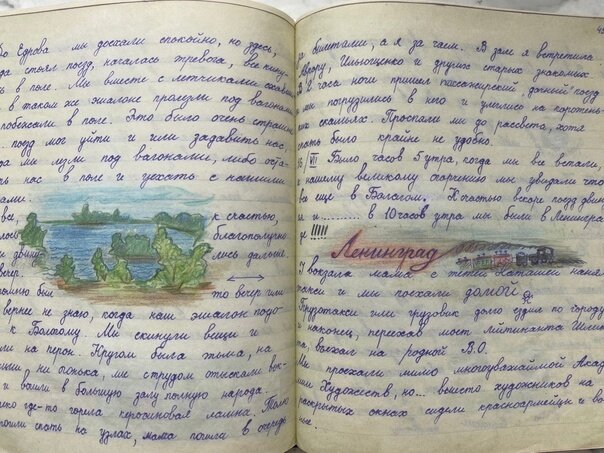 До Едрова мы доехали спокойно, но здесь,
стоял поезд, началась тревога, все кину-
в поле. Мы вместе с летчиками
в таком же эшалоне пролезы под вагонами
побежали в поле. Это было очень страшно
поезд мог уйти и или задавить нас,
мы лезли под вагонами, либо оста-
нас в поле и уехать с нашими
ами.
все, к счастью,
благополучно
и двину- лись дальше.
вечер
помню был то вечер или
вернее не знаю, когда наш эшалон подо-
к Балогому. Мы скинули вещи и
ли на перон. Кругом была тьма, на
ни огонька, мы с трудом отискали вок-
и вошли в большую залу полную народа.
где-то горела керосиновая лампа. Только
спать на узлах, мама пошла в очередь
за билетами, а я за чаем. В зале я встретила
Ильющенко и других старых знакомых.
В часа ночи пришел пассажирский, дачный поезд
ми погрузились в него и улеглись на
их скамьях. Проспали мы до рассвета, хотя
спать было крайне не удобно.
VII Било часов 5 утра, когда мы все встали,
и нашему великому огорчению мы увидали что
все еще в Балагом. К счастью вскоре поезд двин-
и ........ в 10 часов утра мы были в Ленингра-
де !!!!!
Ленинград
У вокзала мама с тетей Наташей наня
такси и мы поехали домой
Грузотакси или грузовик долго ездил по городу
и наконец, переехав мост лейтинанта Шмид-
та, выехал на родной В.О.
Мы проехали мимо многоуважаймой Акад
мии Художеств, но... вместо художников на
раскрытых окнах сидели красноармейцы и во
ные.